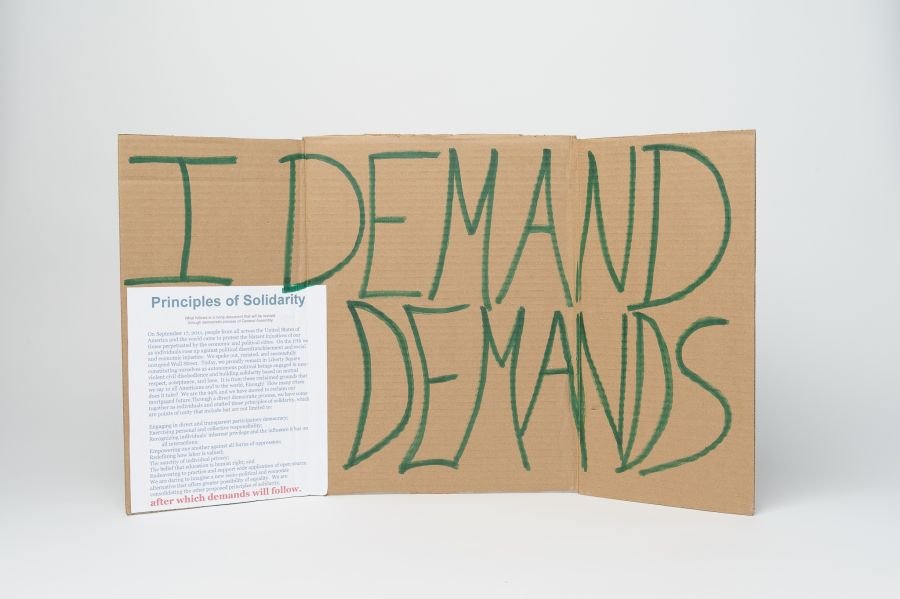 I DEMAND
DEMANDS
Principles of Solidarity
What follows is a living document that will be revised
through democratic process of General Assembly
On September 17, 2011, people from all across the United States of
America and the world came to protest the blatant injustices of our
times perpetuated by the economic and political elites. On the 17th we
as individuals rose up against political disenfranchisement and social
and economic injustice. We spoke out, resisted, and successfully
occupied Wall Street. Today, we proudly remain in Liberty Square
constituting ourselves as autonomous political beings engaged in non-
violent civil disobedience and building solidarity based on mutual
respect, acceptance, and love. It is from these reclaimed grounds that
we say to all Americans and to the world, Enough! How many crises
does it take? We are the 99% and we have moved to reclaim our
mortgaged future. Through a direct democratic process, we have come
together as individuals and crafted these principles of solidarity, which
are points of unity that include but are not limited to:
Engaging in direct and transparent participatory democracy;
Exercising personal and collective responsibility;
Recognizing individuals' inherent privilege and the influence it has on
all interactions;
Empowering one another against all forms of oppression;
Redefining how labor is valued;
The sanctity of individual privacy;
The belief that education is human right; and
Endeavoring to practice and support wide application of open source.
We are daring to imagine a new socio-political and economic
alternative that offers greater possibility of equality. We are
consolidating the other proposed principles of solidarity,
after which demands will follow.